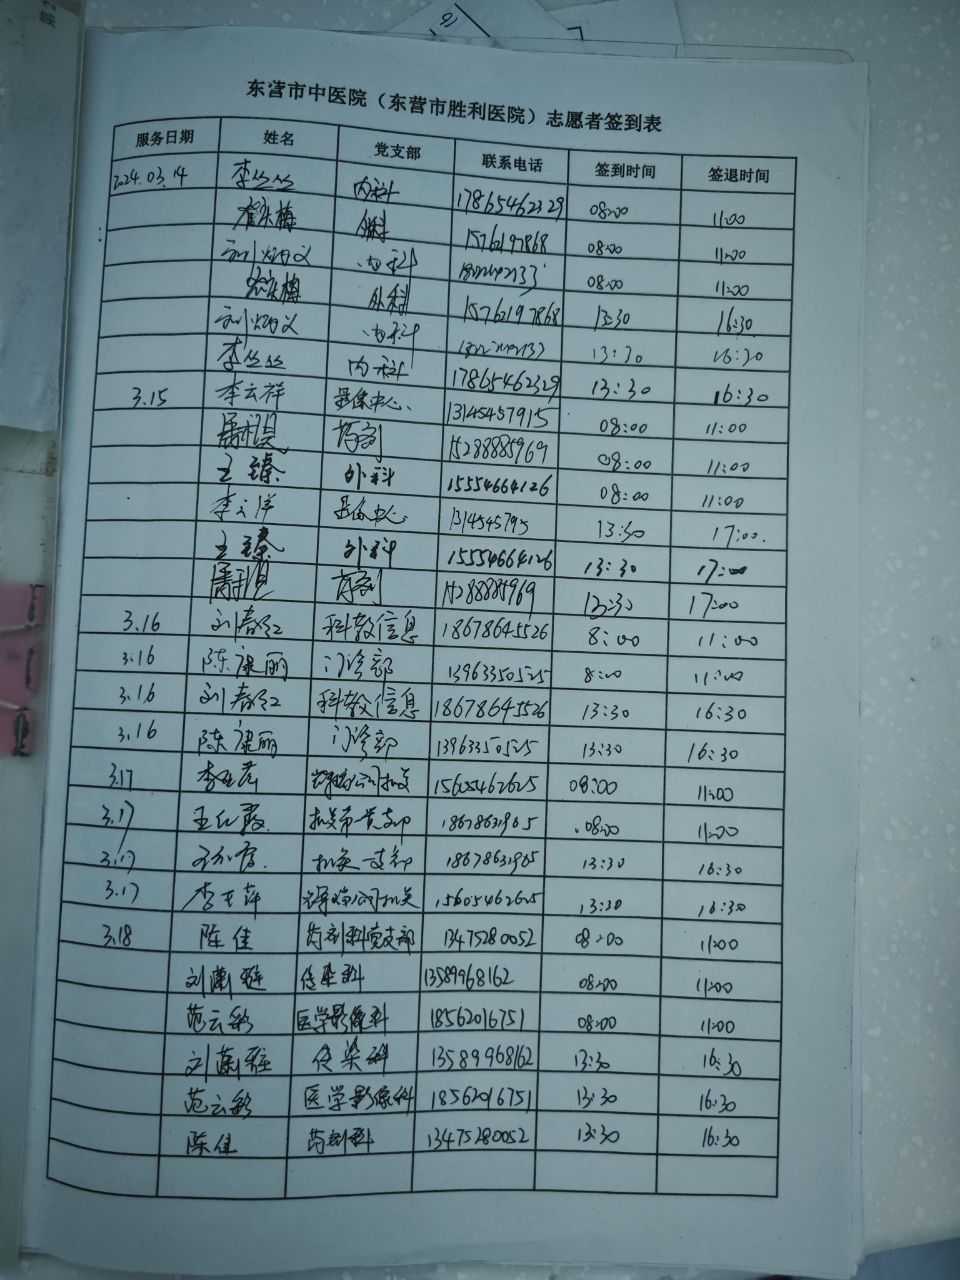 东营市中医院（东营市胜利医院）志愿者签到表
服务日期 姓名 党支部 联系电话 签到时间 签退时间
2024.03.14 李丛丛 内科 17865462329 08:00 11:00
外科 15762197868 08:00 11:00
刘炳义 内科 08:00 11:00
外科 15762197868 13:30 16:30
刘炳义 内科 13:30 16:30
李丛丛 内科 17865462329 13:30 16:30
3.15 李云祥 影像中心 13145457915 08:00 11:00
药剂 15288885969 08:00 11:00
王臻 外科 15554664126 08:00 11:00
李云祥 影像中心 1314545795 13:30 17:00.
王臻 外科 15554664126 13:30 17:00
药剂 15288885969 13:30 17:00
3.16 刘春红 科教信息 18678645526 8:00 11:00
3.16 陈康丽 门诊部 13963350525 8:00 11:00
3.16 刘春红 科教信息 18678645526 13:30 16:30
3.16 陈康丽 门诊部 13963350525 13:30 16:30
3.17 15605462625 08:00 11:00
3.17 王红霞 18678631905 08:00 11:00
3.17 机关一支部 18678631905 13:30 16:30
3.17 李玉萍 15605462625 13:30 16:30
3.18 陈佳 药剂科党支部 13475280052 08:00 11:00
刘潇雅 传染科 13589968162 08:00 11:00
范云彩 医学影像科 18562016751 08:00 11:00
刘潇雅 传染科 13589968162 13:30 16:30
范云彩 医学影像科 18562016751 13:30 16:30
陈佳 药剂科 13475280052 13:30 16:30